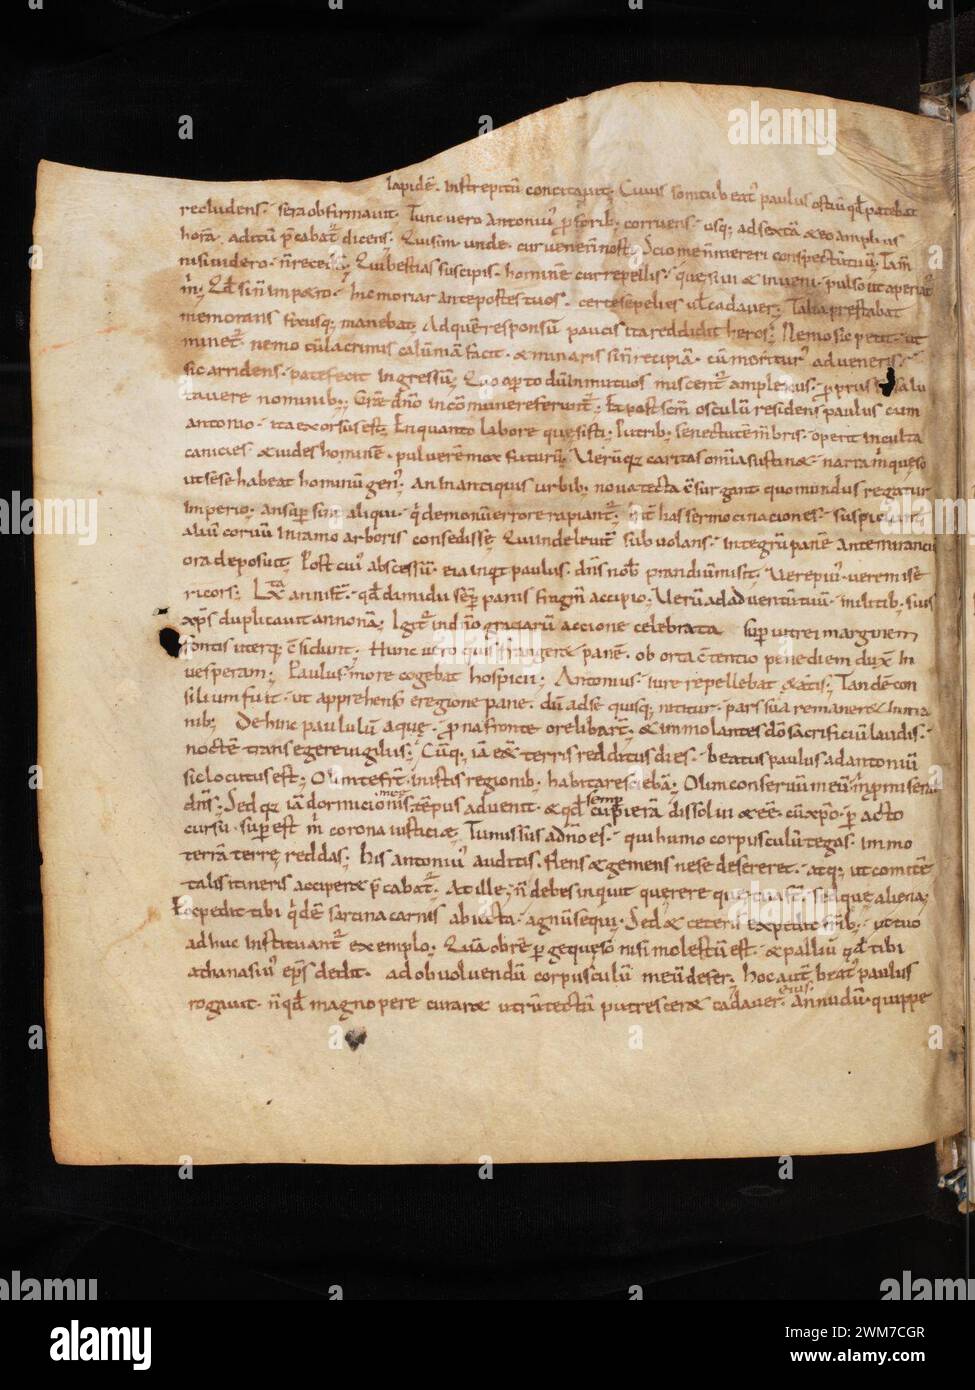 lapidē. Instrepitū concitavit. Cuius sonitu beatꝰ paulus ostiū qd̄ patebat
recludens. sera obfirmavit. Tunc vero Antoniuꝰ p̱ forib; corruens. usq; ad sextā & eo amplius
horā aditū p̄cabat᷑ dicens; Qui sim. unde. cur venerī nosti; Scio me n̄ mereri conspectū tuū; Tam̄
nisi videro. n̄ recedā; Qui bestias suscipis. hominē cur repellis. quesivi & inveni. pulso ut aperiat᷑
m̄; Qd̄ si n̄ imp&ro. hic moriar ante postes tuos. certe sepelies vl̄ cadaver; Talia prestabat
memorans fixusq; manebat; Ad quē responsū paucis ita reddidit heros; Nemo sic petit. ut
minet᷑. nemo cū lacrimis calūniā facit. & miraris si n̄ recipiā. cū moriturꝰ adveneris.
sic arridens. patefecit ingressū; Quo aperto dū in mutuos miscent᷑ amplexus. p̱priis salu
tavere nominib;; Grāe dn̄o in cōmune referunt᷑; Et post scm̄ osculū residens paulus cum
antonio. ita exorsus est; En quanto labore quesisti. putrib; senectute mēbris. operit inculta
canicies. & vides hominē. pulverē mox futurū; Verū qz caritas om̄ia sustin&. narra m̄ queso
ut sese habeat hominū genꝰ. An in antiquis urbib; nova tecta c̄surgant. quo mundus regatur
imperio; an suꝑsint aliqui. q̄ demonū errore rapiant᷑; Int̄ has sermocinationes. suspiciunt
aliū corvū in ramo arboris consedisse; Qui inde levit̄ subvolans. integrū panē ante mirantiū
ora deposuit. Post cuiꝰ abscessū. eia inqt̄ paulus. dn̄s nob̄ prandiū misit. Vere piuꝰ. vere mise
ricors; Lx̄ta anni s̄t. qd̄ dimidii seꝑ panis fragm̄ accipio; Verū ad adventū tuū. militib; suis
xp̄s duplicavit annonā; Igit᷑ in dn̄o gratiarū actione celebrata sup̱ vitrei marginem
fontis uterq; c̄sidunt; Hunc vero quis frangeret panē. ob orta c̄tentio pene diem duxit in
vesperam; Paulus. more cogebat hospicii; Antonius. iure repellebat &atis; Tandē con
silium fuit. ut apprehensꝰ e regione pane. dū ad se quisq; nititur. pars sua remaneret in ma
nib; Dehinc paululū aquę. prona fronte ore libarunt. & immolantes dō sacrificiū laudis.
noctē transegere vigiliis; Cūq; iā eēt terris redditus dies. beatus paulus ad antoniū
sic locutus est; Olim te frat̄. in istis regionib; habitare sciebā; Olim conservū meū m̄ promiserat
dn̄s; Sed qz iā dormicionis meę tēpus advenit. & qd̄ semꝑ cupierā dissolvi & eē. cū xp̄o ꝑ acto
cursu. suꝑest m̄ corona iusticiae. Tu missus a dn̄o es. qui humo corpusculū tegas. immo
terrā terrę reddas; His antoniuꝰ auditis. flens & gemens ne se desereret. atq; ut comitē
talis itineris acciper& p̄cabat᷑. At ille; n̄ debes inquit querere que tua sūt. sed que aliena;
Expedit tibi q̄dē sarcina carnis abiecta. agnū sequi. Sed & ceteris expedit frīb;. ut tuo
adhuc instituant᷑ exemplo; Quā obrē ꝑge queso nisi molestū est. & palliū qd̄ tibi
athanasiuꝰ ep̄s dedit. ad obvolvendū corpusculū meū defer; Hoc aut̄ beatꝰ paulus
rogavit. n̄ qd̄ magno pere curar& utrū tectū putrescer& cadaver eius. an nudū. quippe